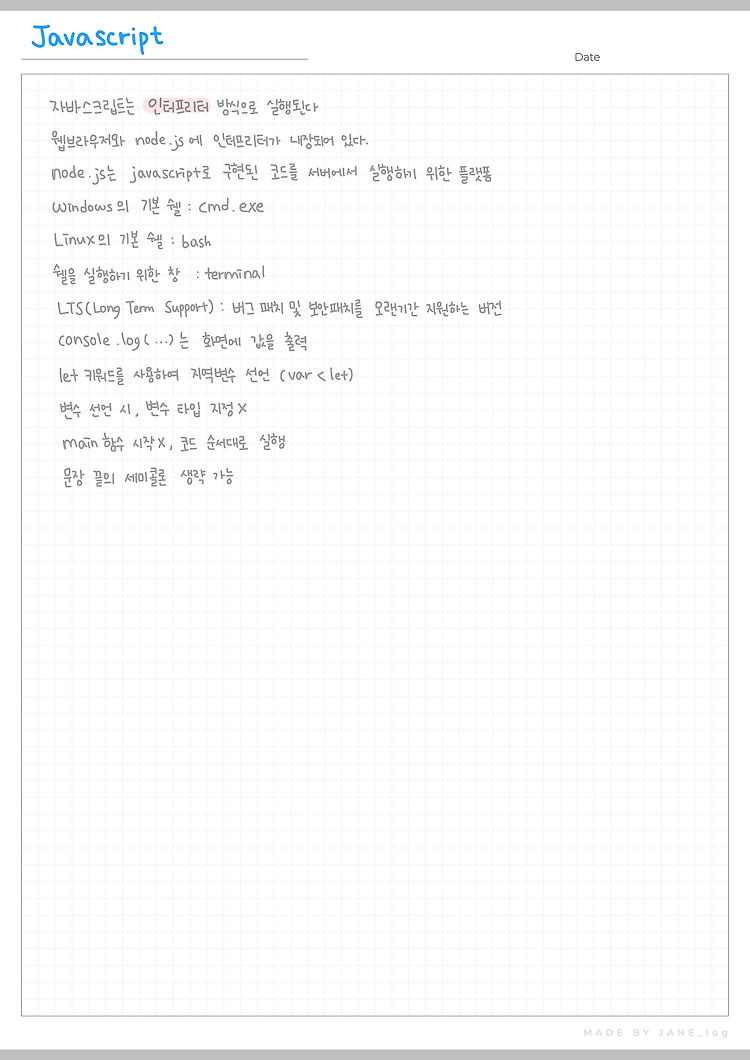 Javascript
Date
자바스크립트는 인터프리터 방식으로 실행된다
웹브라우저와 node.js에 인터프리터가 내장되어 있다.
node.js는 javascript로 구현된 코드를 서버에서 실행하기 위한 플랫폼
Windows의 기본 쉘 : cmd.exe
Linux의 기본 쉘 : bash
쉘을 실행하기 위한 창 : terminal
LTS(Long Term Support) : 버그 패치 및 보안패치를 오랜기간 지원하는 버전
console.log(...)는 화면에 값을 출력
let 키워드를 사용하여 지역변수 선언 (var < let)
변수 선언 시, 변수 타입 지정 X
main 함수 시작 X, 코드 순서대로 실행
문장 끝의 세미콜론 생략 가능
MADE BY JANE_log